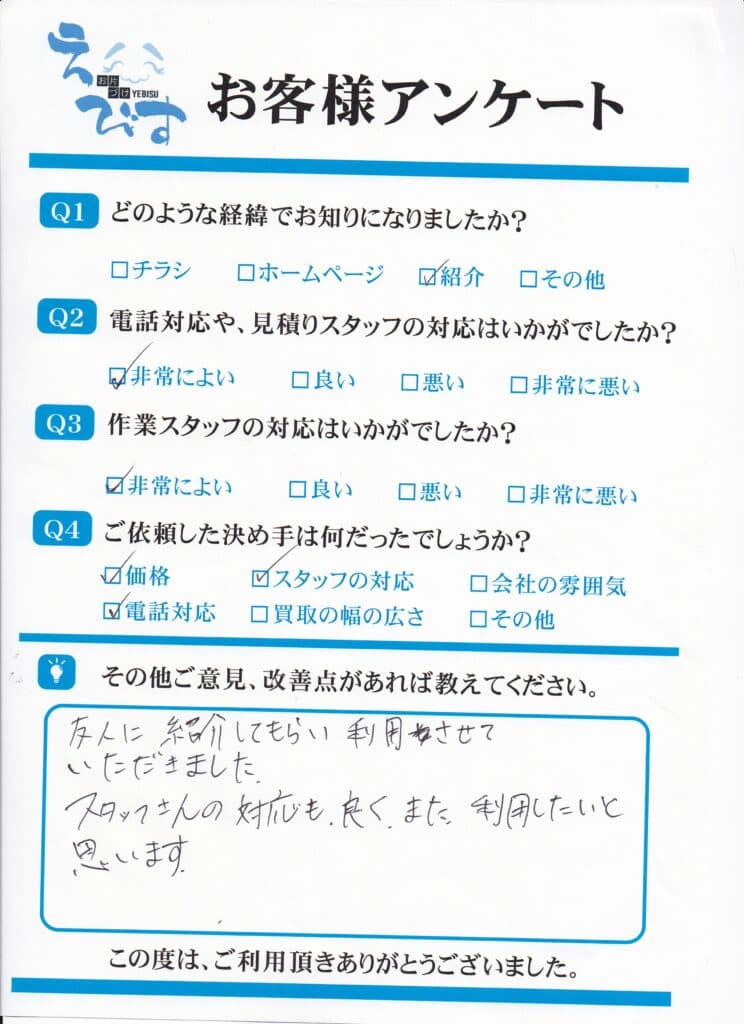 えびす
お片づけ YEBISU
お客様アンケート
Q1 どのような経緯でお知りになりましたか?
□チラシ □ホームページ ☑紹介 □その他
Q2 電話対応や、見積りスタッフの対応はいかがでしたか?
☑非常によい □良い □悪い □非常に悪い
Q3 作業スタッフの対応はいかがでしたか?
☑非常によい □良い □悪い □非常に悪い
Q4 ご依頼した決め手は何だったでしょうか?
☑価格 ☑スタッフの対応 □会社の雰囲気
☑電話対応 □買取の幅の広さ □その他
その他ご意見、改善点があれば教えてください。
友人に紹介してもらい利用させて
いただきました。
スタッフさんの対応も、良く、また、利用したいと
思います。
この度は、ご利用頂きありがとうございました。